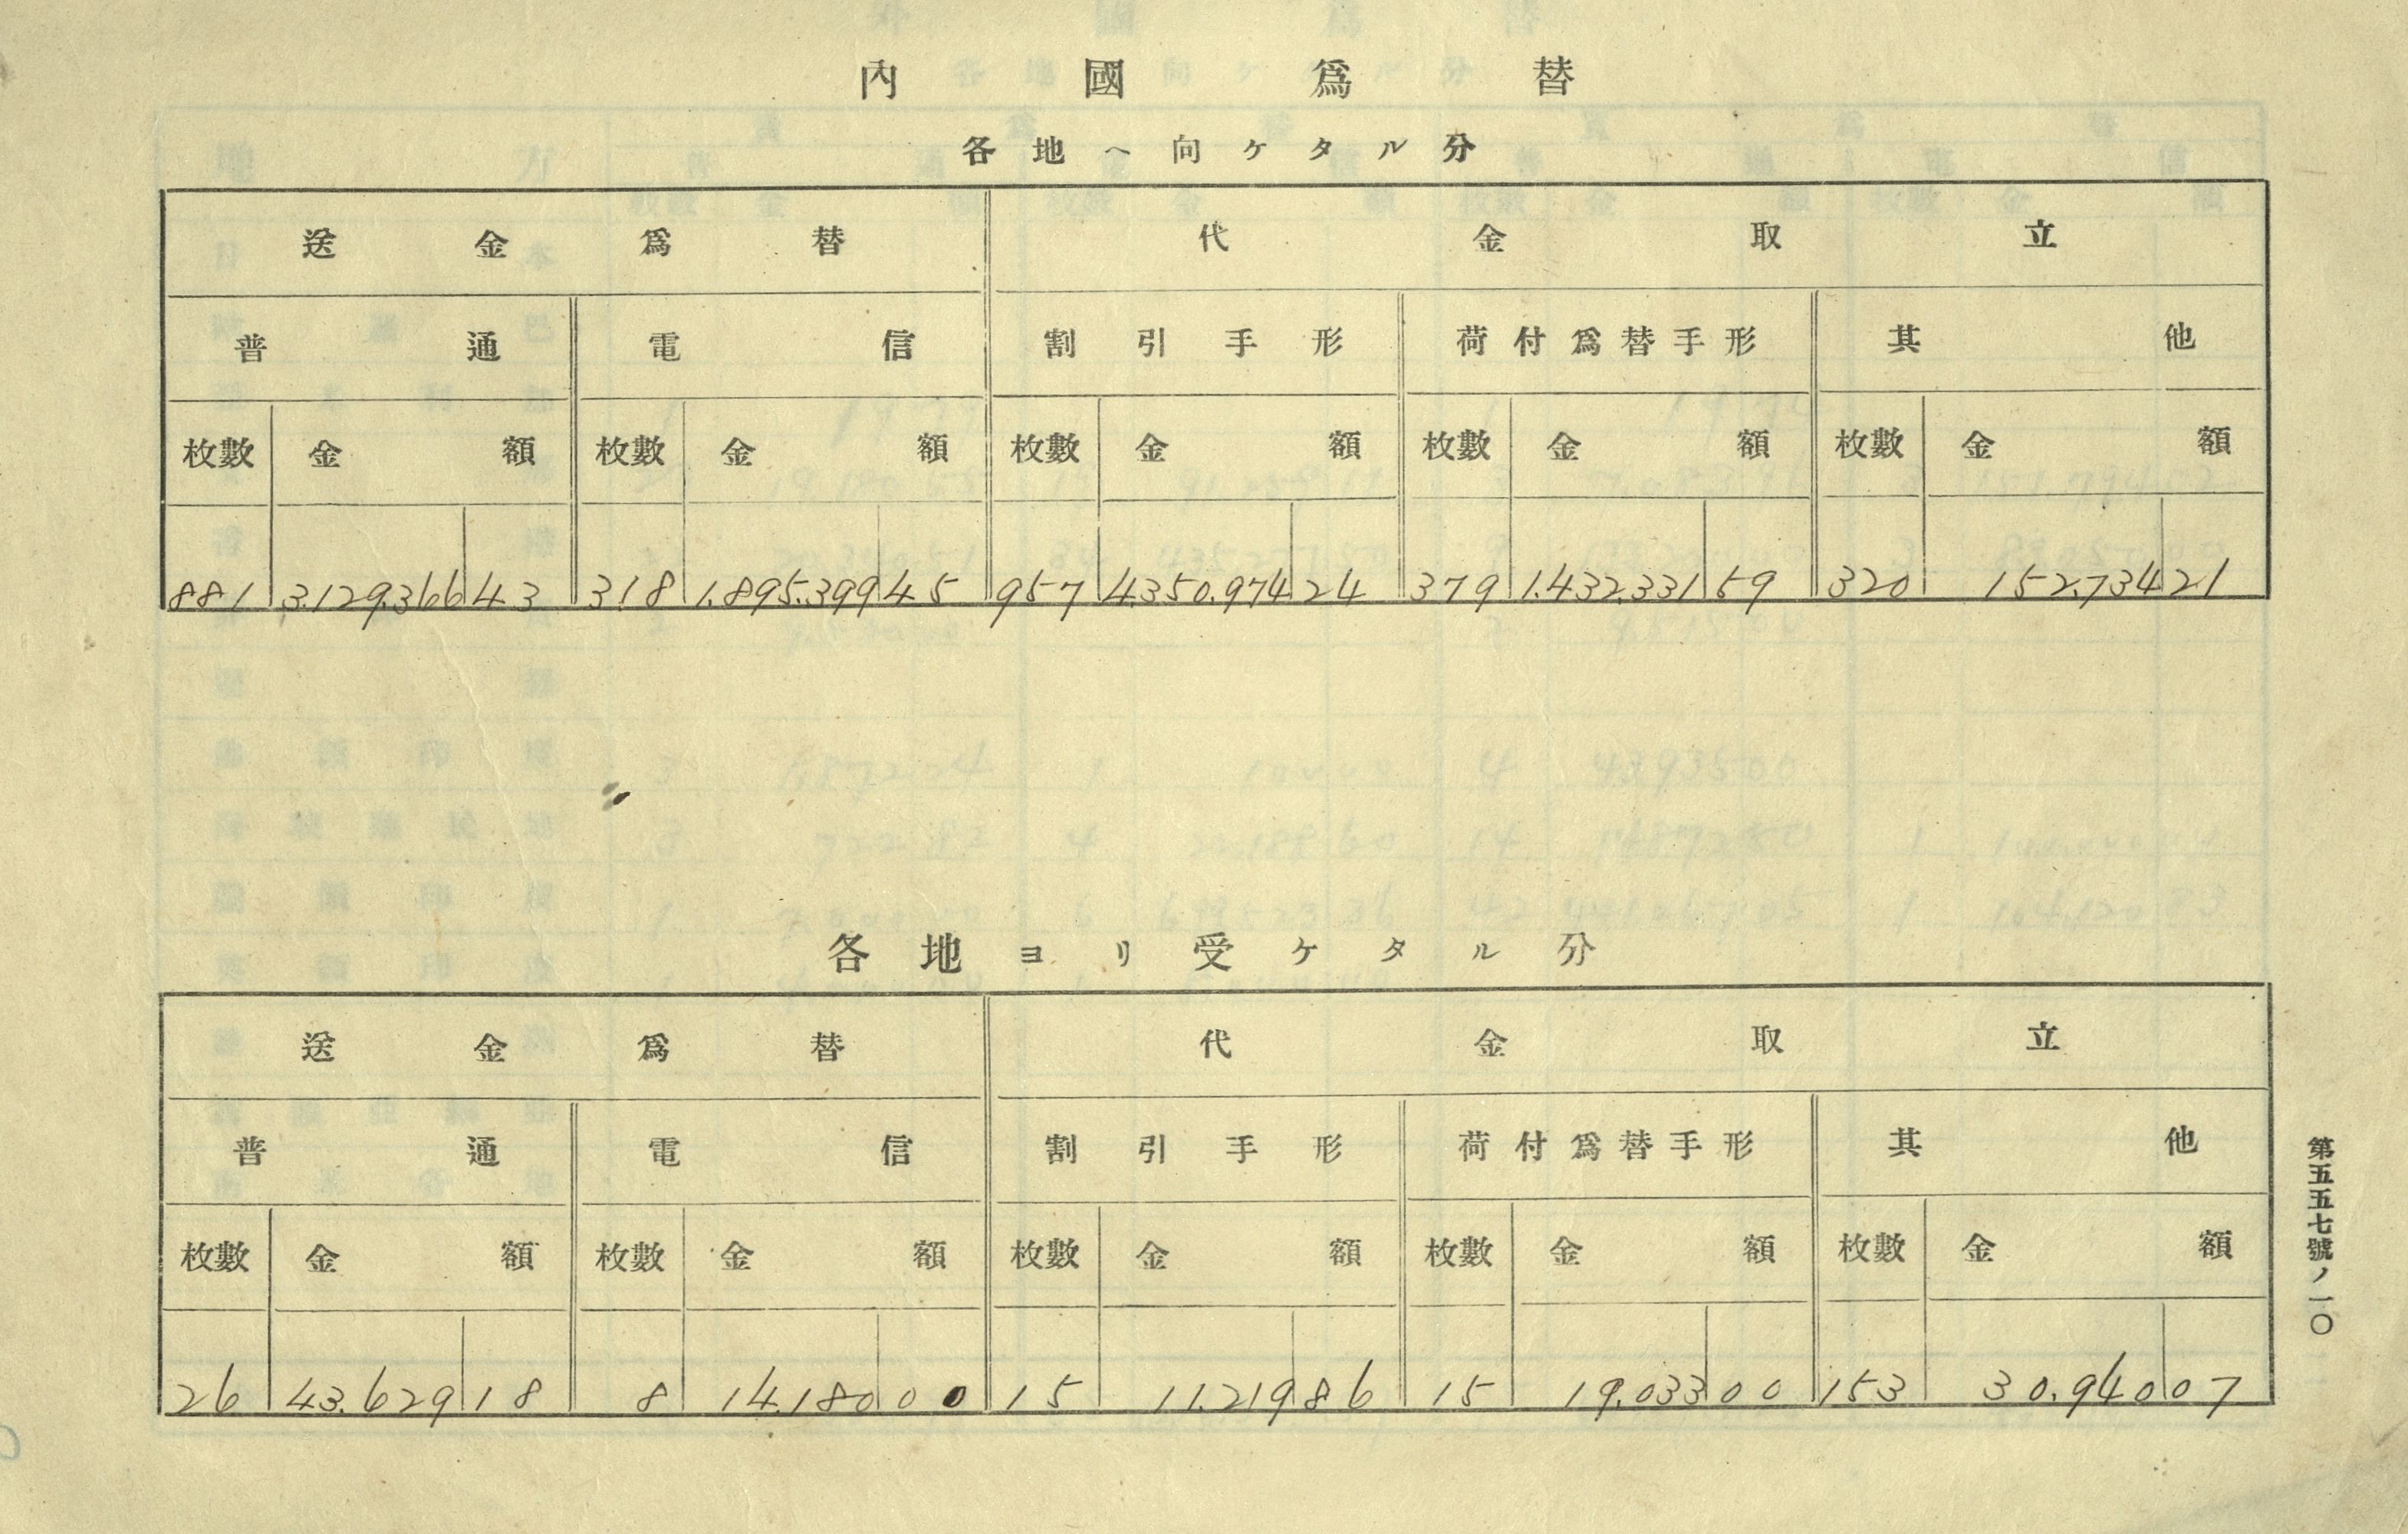 內國爲替
各地へ向ケタル分
送金爲替 代金取立
普通 電信 割引手形 荷付爲替手形 其他
枚數 金額 枚數 金額 枚數 金額 枚數 金額 枚數 金額
881 3.129.366 43 318 1.895.399 45 957 4.350.974 24 379 1.432.331 59 320 152.734 21
各地ヨリ受ケタル分
送金爲替 代金取立
普通 電信 割引手形 荷付爲替手形 其他
枚數 金額 枚數 金額 枚數 金額 枚數 金額 枚數 金額
26 43.629 18 8 14.180 00 15 11.219 86 15 19.033 00 153 30.940 07
第五五七號ノ一〇